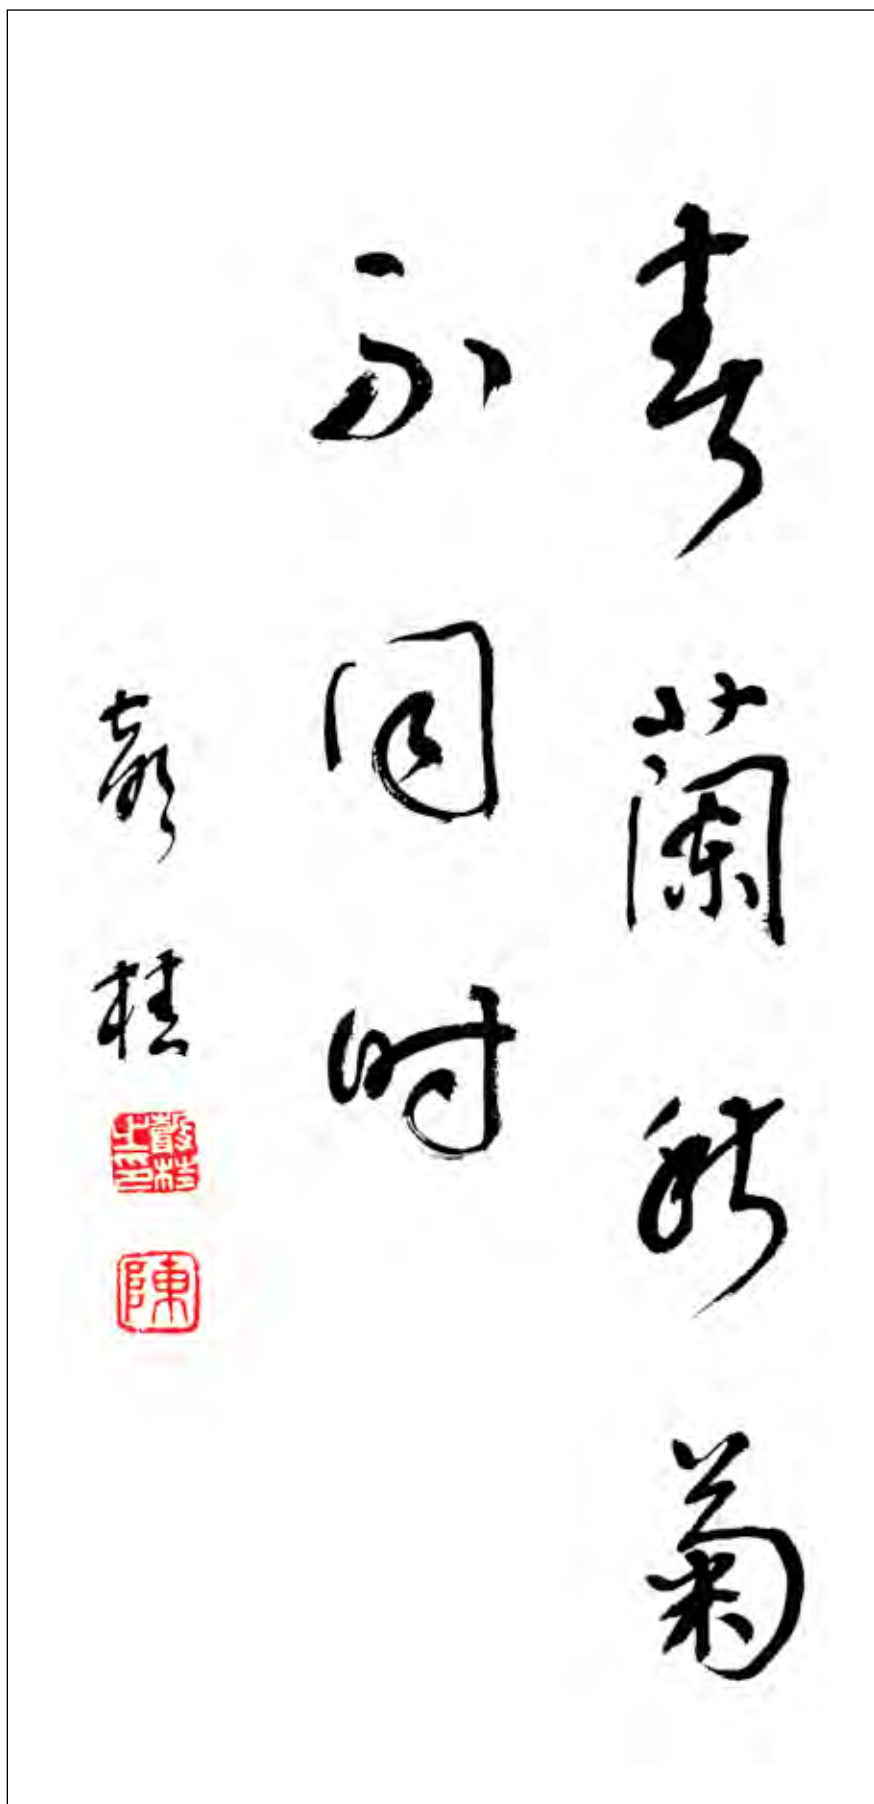 春蘭秋菊
不同時
聲桂
聲桂之印
陳